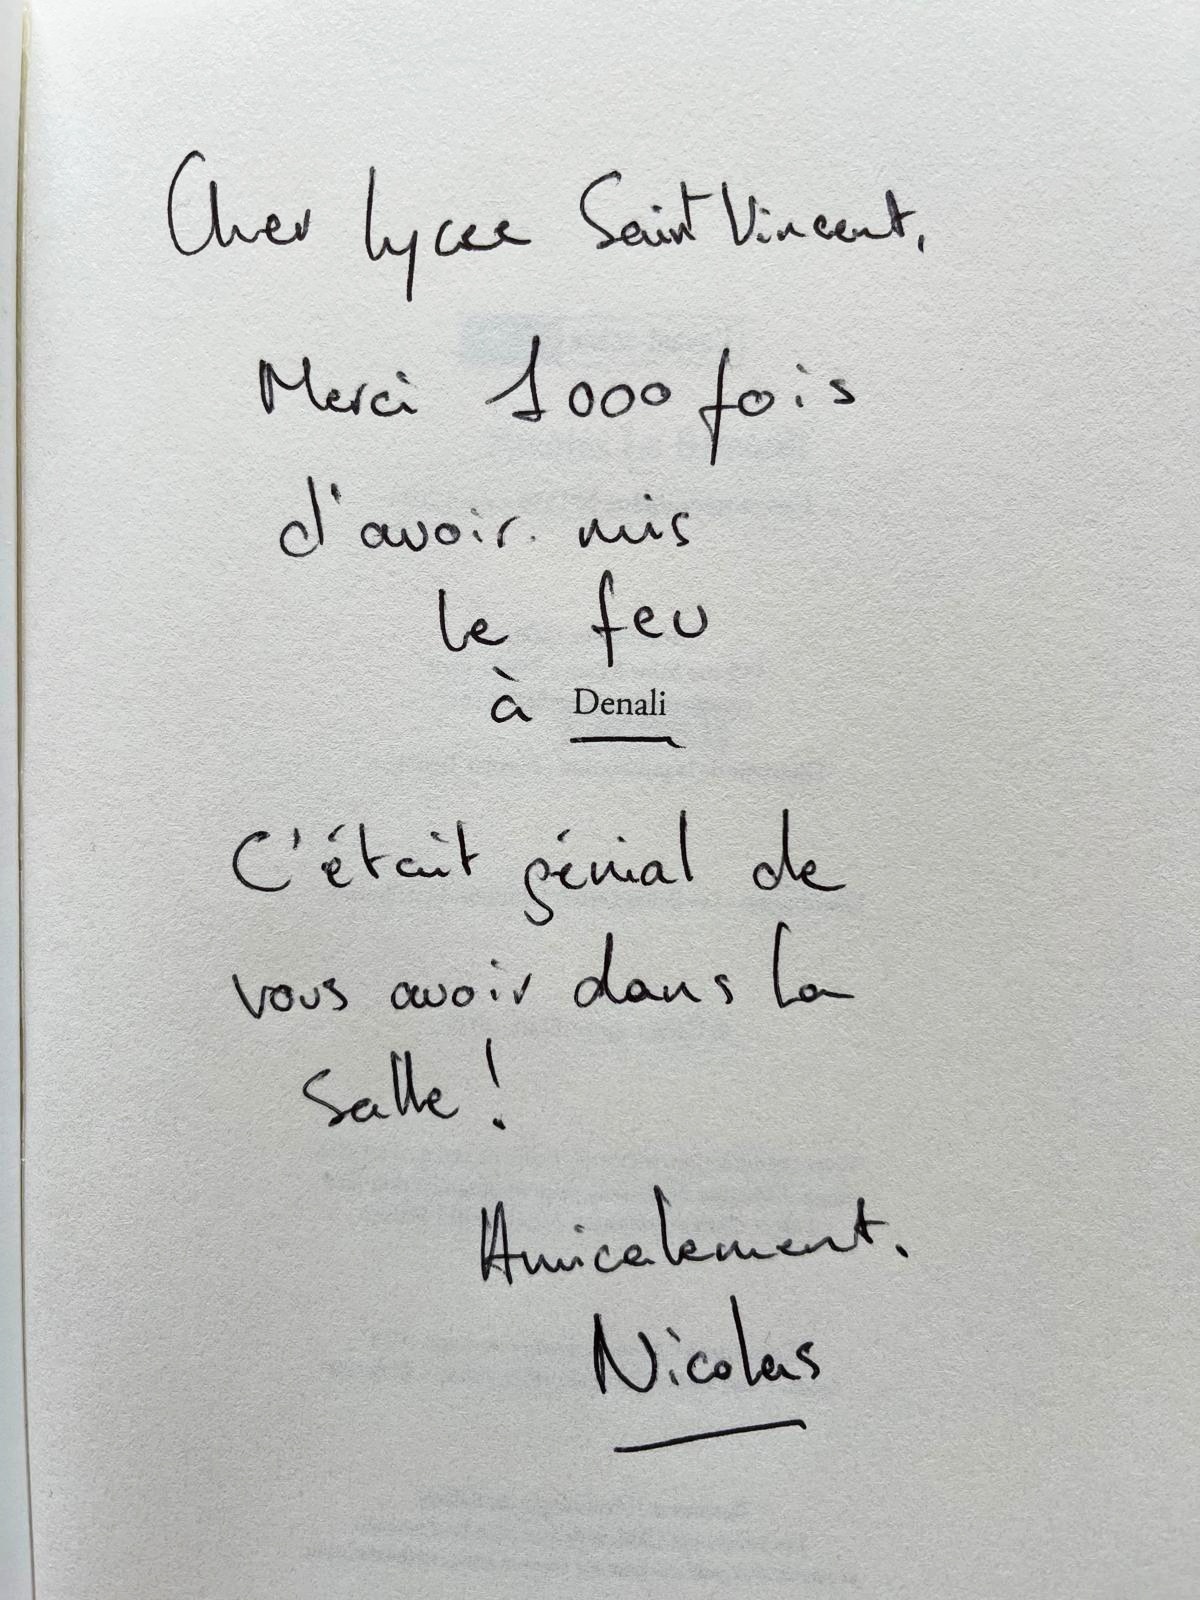 Cher Lycée Saint Vincent,
Merci 1000 fois
d'avoir mis
le feu
à Denali
C'était génial de
vous avoir dans la
salle !
Amicalement.
Nicolas